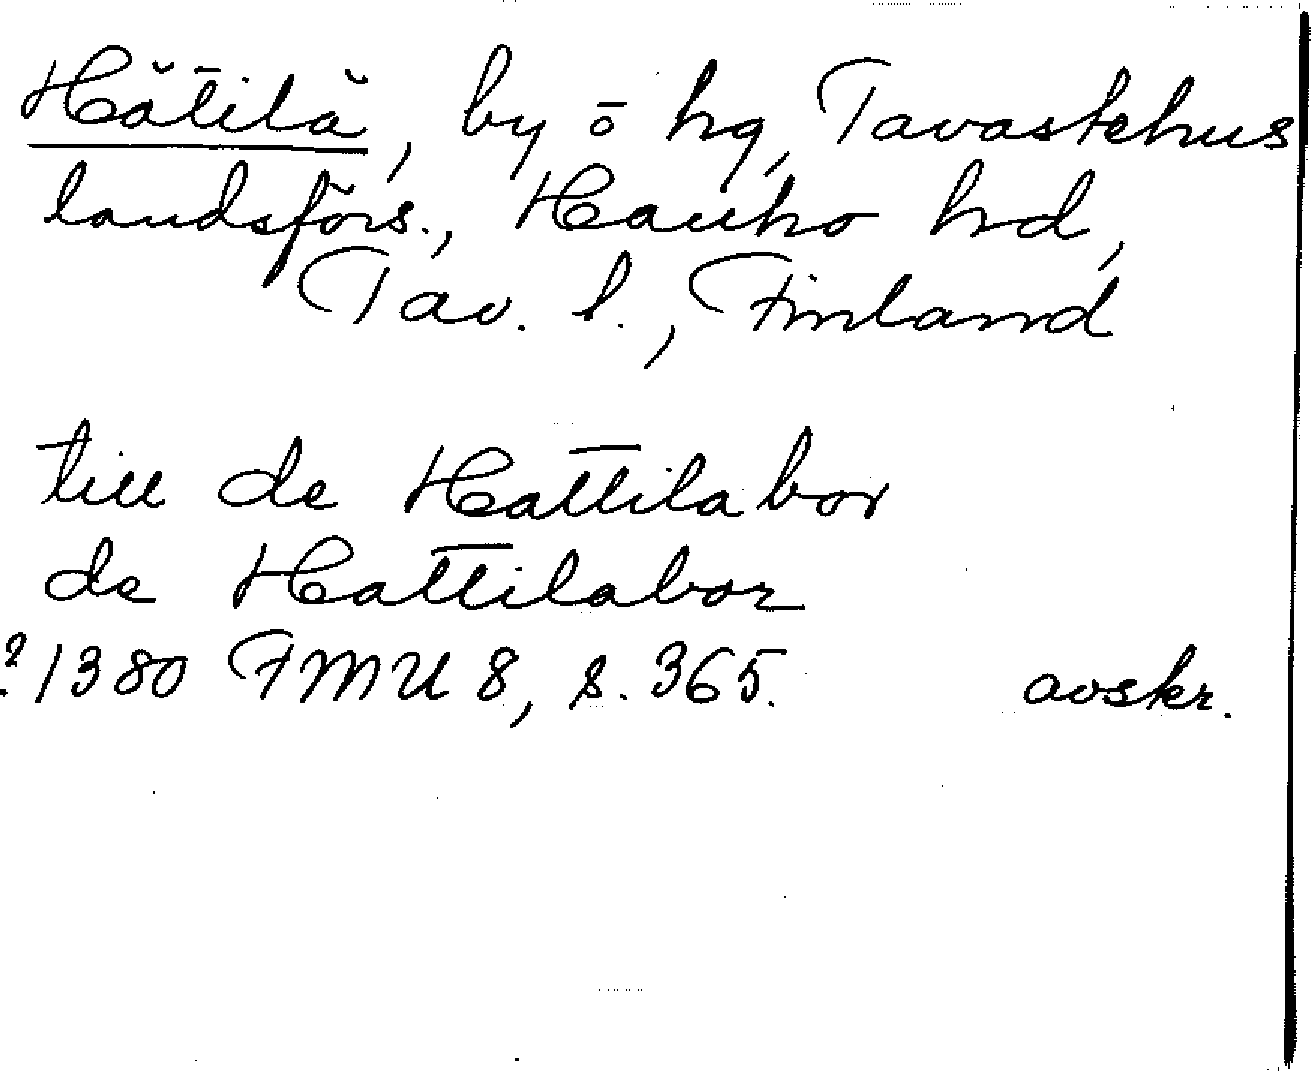 Hätilä, by ö hg, Tavastehus
landsförs., Hauho hrd,
Tav. l., Finland
till de Hattilabor
de Hattilaboz
? 1380 FMU 8, s. 365. avskr.